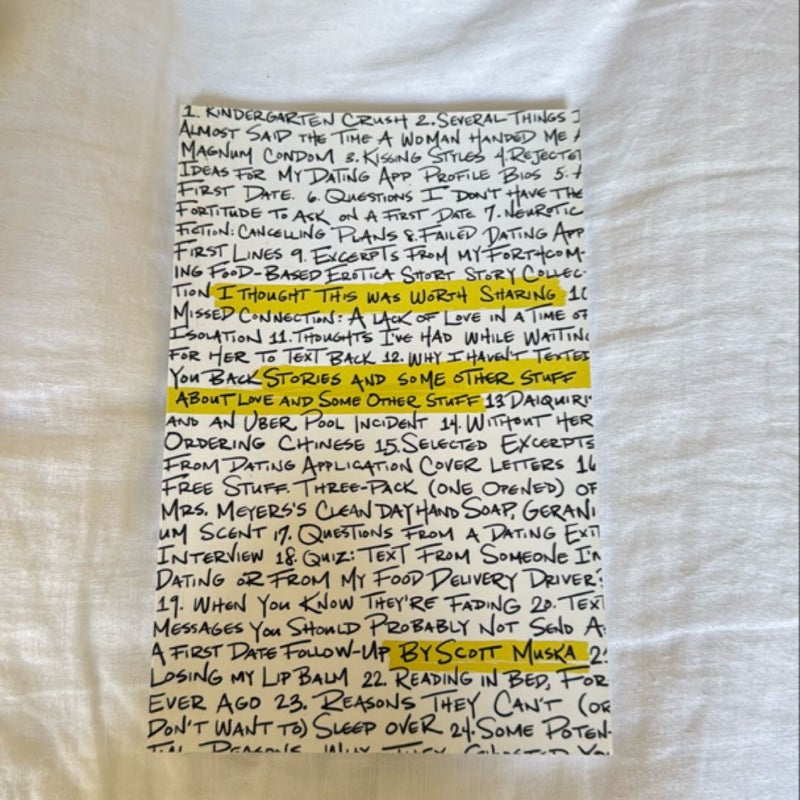 1. KINDERGARTEN CRUSH 2. SEVERAL THINGS I
ALMOST SAID THE TIME A WOMAN HANDED ME A
MAGNUM CONDOM 3. KISSING STYLES 4. REJECTED
IDEAS FOR MY DATING APP PROFILE BIOS 5. A
FIRST DATE. 6. QUESTIONS I DON'T HAVE THE
FORTITUDE TO ASK ON A FIRST DATE 7. NEUROTIC
FICTION: CANCELLING PLANS 8. FAILED DATING APP
FIRST LINES 9. EXCERPTS FROM MY FORTHCOM-
ING FOOD-BASED EROTICA SHORT STORY COLLEC-
TION I THOUGHT THIS WAS WORTH SHARING 10
MISSED CONNECTION: A LACK OF LOVE IN A TIME OF
ISOLATION 11. THOUGHTS I'VE HAD WHILE WAITING
FOR HER TO TEXT BACK 12. WHY I HAVEN'T TEXTED
YOU BACK STORIES AND SOME OTHER STUFF
ABOUT LOVE AND SOME OTHER STUFF 13 DAIQUIRI
AND AN UBER POOL INCIDENT 14. WITHOUT HER
ORDERING CHINESE 15. SELECTED EXCERPTS
FROM DATING APPLICATION COVER LETTERS 16
FREE STUFF. THREE-PACK (ONE OPENED) OF
MRS. MEYERS'S CLEAN DAY HAND SOAP, GERANI
UM SCENT 17. QUESTIONS FROM A DATING EXIT
INTERVIEW 18. QUIZ: TEXT FROM SOMEONE I'M
DATING OR FROM MY FOOD DELIVERY DRIVER?
19. WHEN YOU KNOW THEY'RE FADING 20. TEXT
MESSAGES YOU SHOULD PROBABLY NOT SEND AS
A FIRST DATE FOLLOW-UP BY SCOTT MUSKA 2
LOSING MY LIP BALM 22. READING IN BED, FOR
EVER AGO 23. REASONS THEY CAN'T (OR
DON'T WANT TO) SLEEP OVER 24. SOME POTEN-
TIAL REASONS WHY THEY GHOSTED YOU